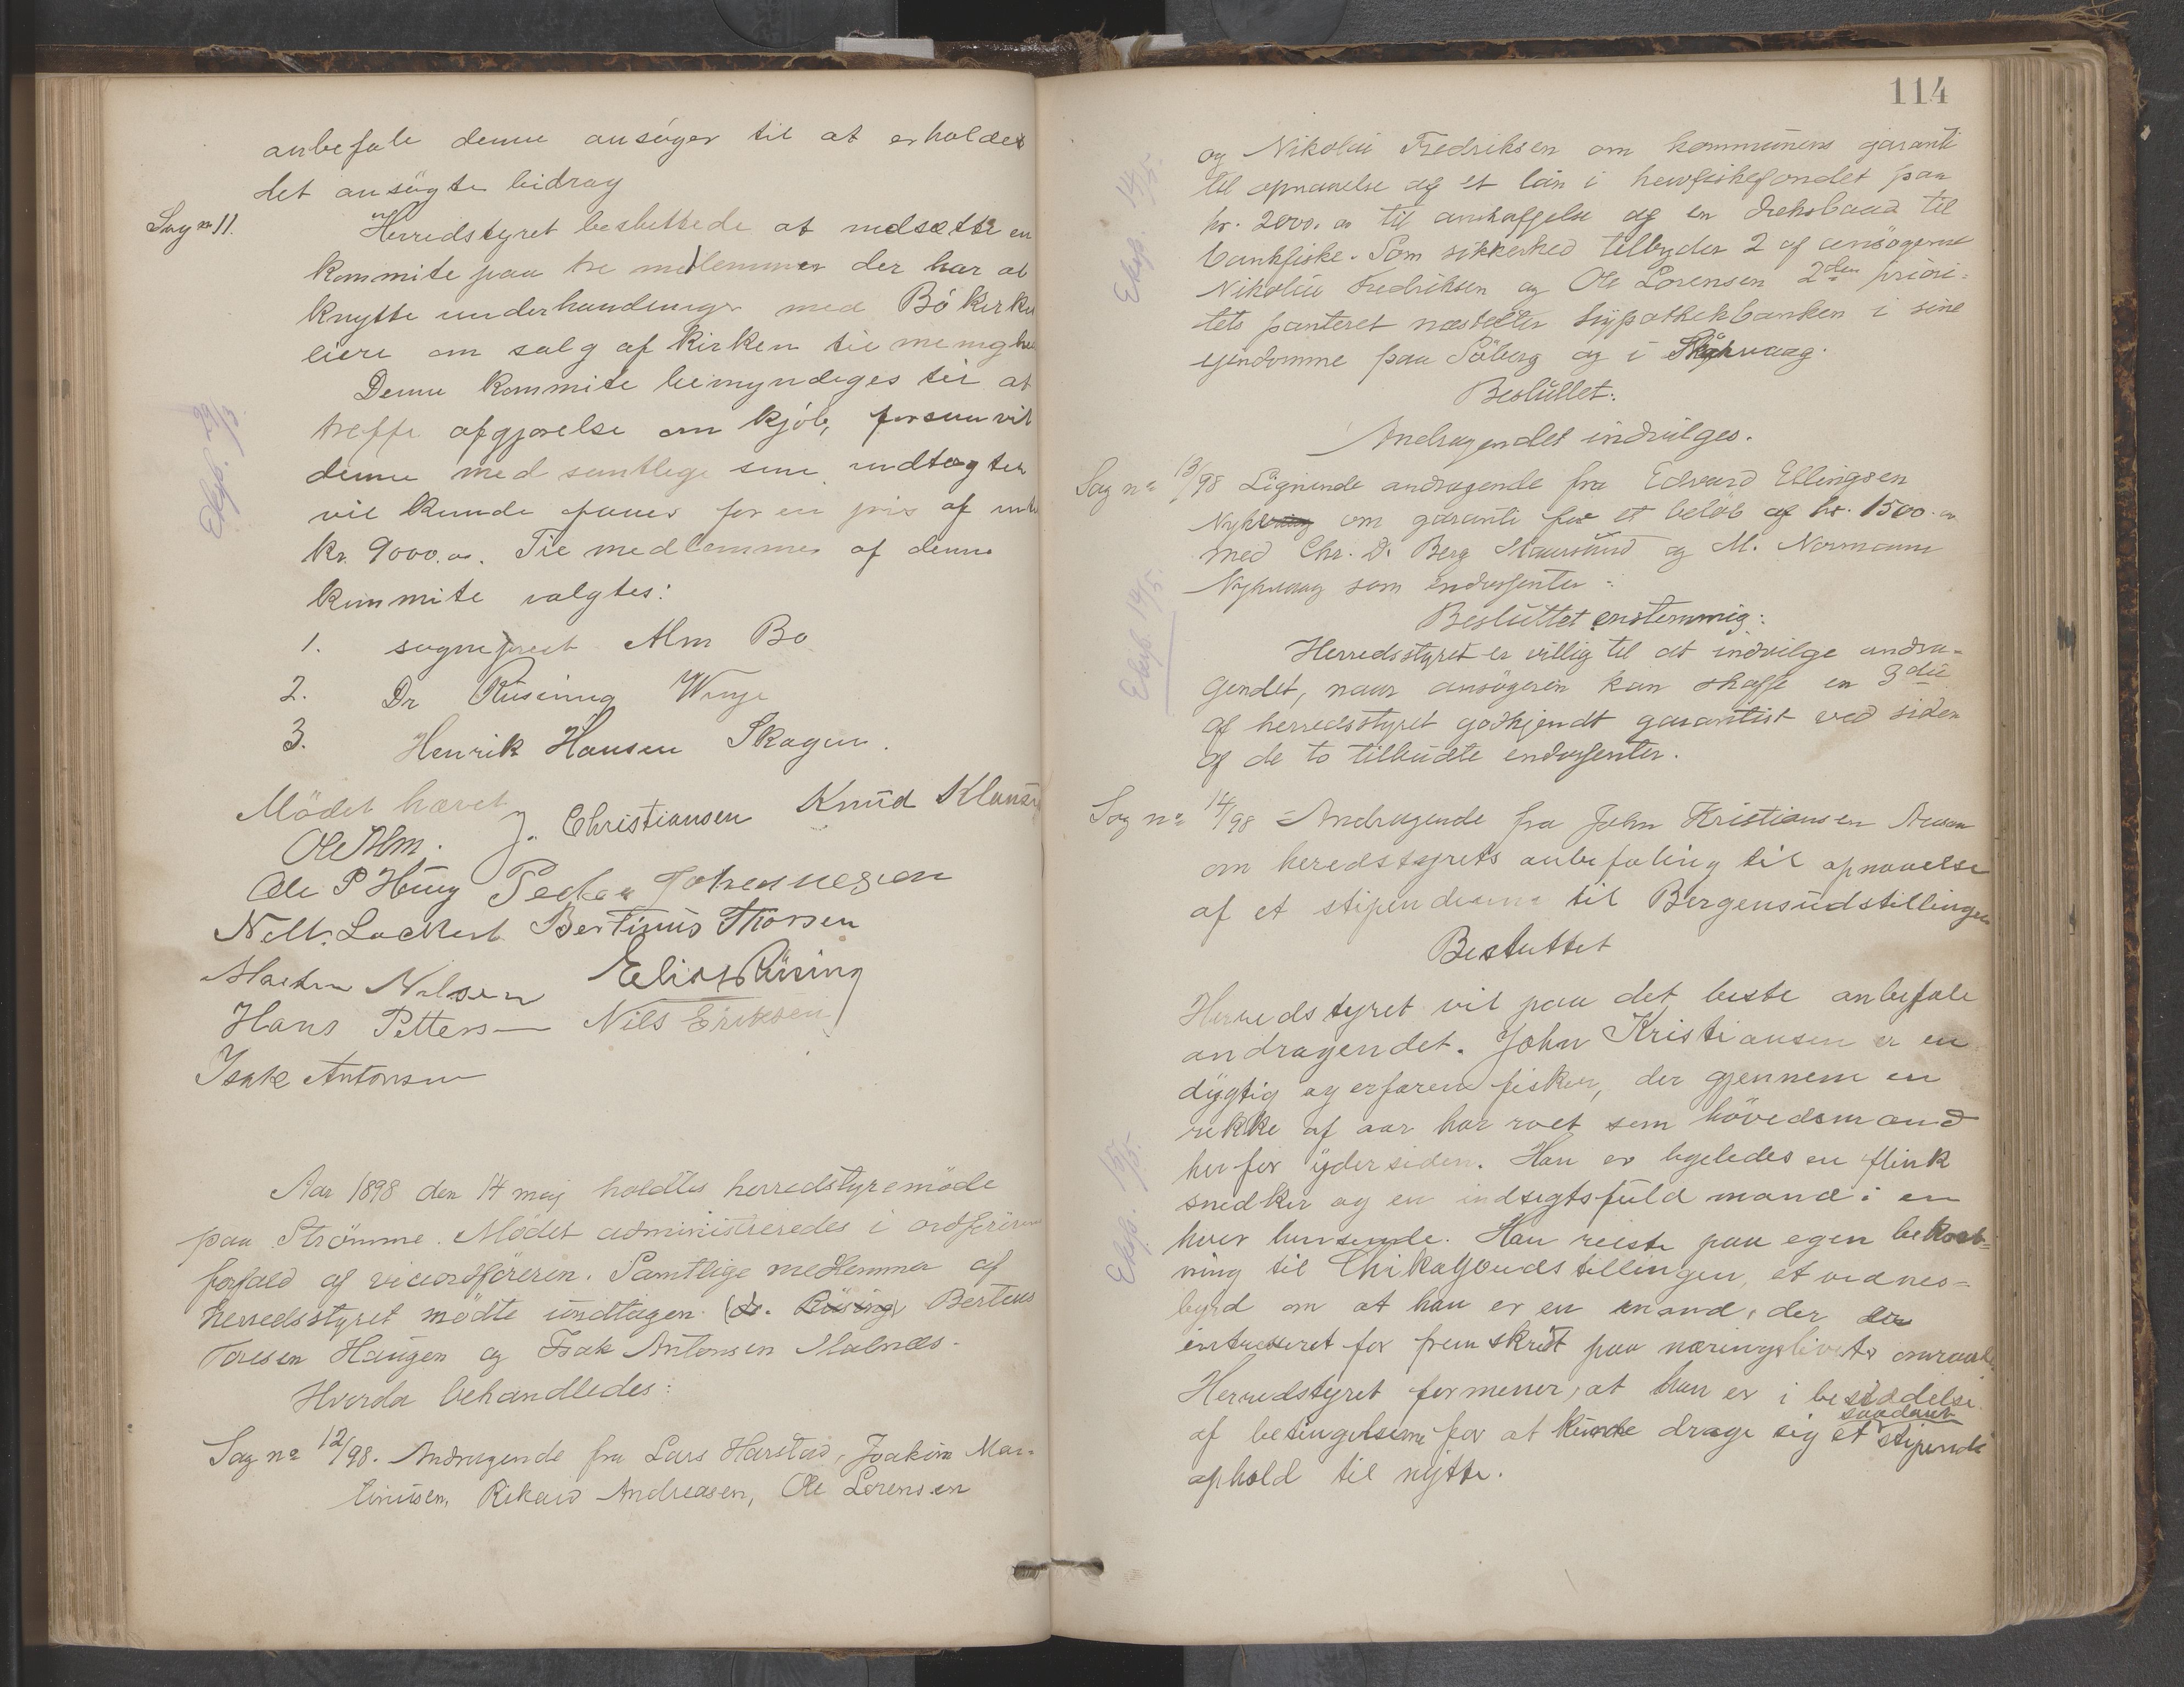 anbefale denne ansøger til at erholdes
det ansøgte bidrag
Sag no 11. Herredstyret besluttede at nedsætte en
kommite paa tre medlemmer der har at
knytte underhandlinger med Bö kirke
eiere om salg af kirken til menighe
Denne kommite bemyndiges til at
treffe afgjørelse om kjöb, forsaavit
denne med samtlege sine indtægter
vil kunde faaes for en pris af
kr. 9000.00. Til medlemmer af denne
kommite valgtes:
Eksp. 29/3.
1. sogneprest Alm Bo
2. Dr Rüsing Winje
3. Henrik Hansen Skagen.
Mödet hævet
Ole Alm. J. Christiansen Knud Klaus
Ole P Haug Peder Johannesen
Lockert Bertinus Thorsen
Martin Nilsen Elias Rüsing
Hans Petters Nils Eriksen
Isak Antonsen
Aar 1898 den 14 maj holdtes herredstyremöde
paa Strömme. Mödet administreredes i ordförer
forfald af viceordföreren. Samtlige medlemmer af
herredsstyret mödte undtagen (dr. Rüsing) Berteus
Toresen Haugen og Isak Antonsen Malnæs.
Hvorda behandledes:
Sag no 12/98. Andragende fra Lars Harstad, Joakim Mar-
tinusen, Rikard Andreasen, Ole Lorensen
114
og Nikolai Fredriksen om kommunens garanti
til opnaaelse af et lån i havfiskefondet paa
kr. 2000.00 til anskaffelse af en deksbaad til
bankfiske. Som sikkerhed tilbyder 2 af ansögerne
Nikolai Fredriksen og Ole Lorensen 2den priori-
tets panteret næstefter hypothekbanken i sine
ejendomme paa Söberg og i
Beslüttet:
Andragendet indvilges.
Eksp. 14/5.
Sag no 13/98 Lignende andragende fra Edvard Ellingsen
Nykvaag om garanti for et belöb af kr. 1500.00
med Chr. D. Berg Skaarsund og M. Normann
Nykvaag som endossenter:
Besluttet enstemmig:
Herredsstyret er villig til at indvilge andra-
gendet, naar ansögeren kan skaffe en 3die
af herredsstyret godkjendt garantist ved siden
af de to tilbudte endossenter.
Eksp. 14/5.
Sag no 14/98 Andragende fra John Kristiansen
om heredstyrets anbefaling til opnaaelse
af et stipendium til Bergensudstillingen
Besluttet
Herredstyret vil paa det beste anbefale
andragendet. John Kristiansen er en
dygtig og erfaren fisker, der gjennem en
rekke af aar har roet som hövedsmand
her for ydersiden. Han er ligeledes en flink
snedker og en indsigtsfuld mand i en
hver henseende. Han reiste paa egen bekost-
ning til Chikagoudstillingen, et vidnes-
byrd om at han er en mand, der er
intreseret for fremskridt paa næringslivets omraade
Herredstyret formener, at han er i besiddelse
af betingelserne for at kunde drage sig et saadant stipendi
ophold til nytte.
Eksp. 15/5.